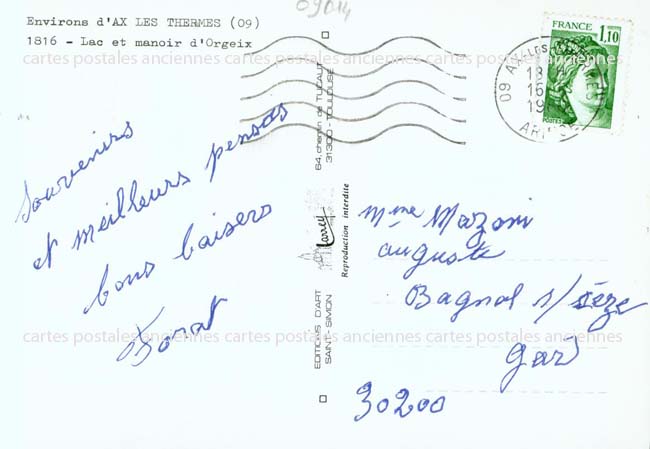 09014
Environs d'AX LES THERMES (09)
1816 - Lac et manoir d'Orgeix
cartes postales anciennes cartes postales anciennes cartes postales anciennes
FRANCE
1,10
POSTES
09 AX-LES
16
19
ARIEGE
Souvenirs
et meilleurs pensées
bons baisers
64, chemin de TUCAUT
31300 - TOULOUSE
Larrey
Reproduction interdite
EDITIONS D'ART
SAINT-SIMON
Mme Mazoni
auguste
Bagnol s/ sèze
gard
30200
cartes postales anciennes cartes postales anciennes cartes postales anciennes